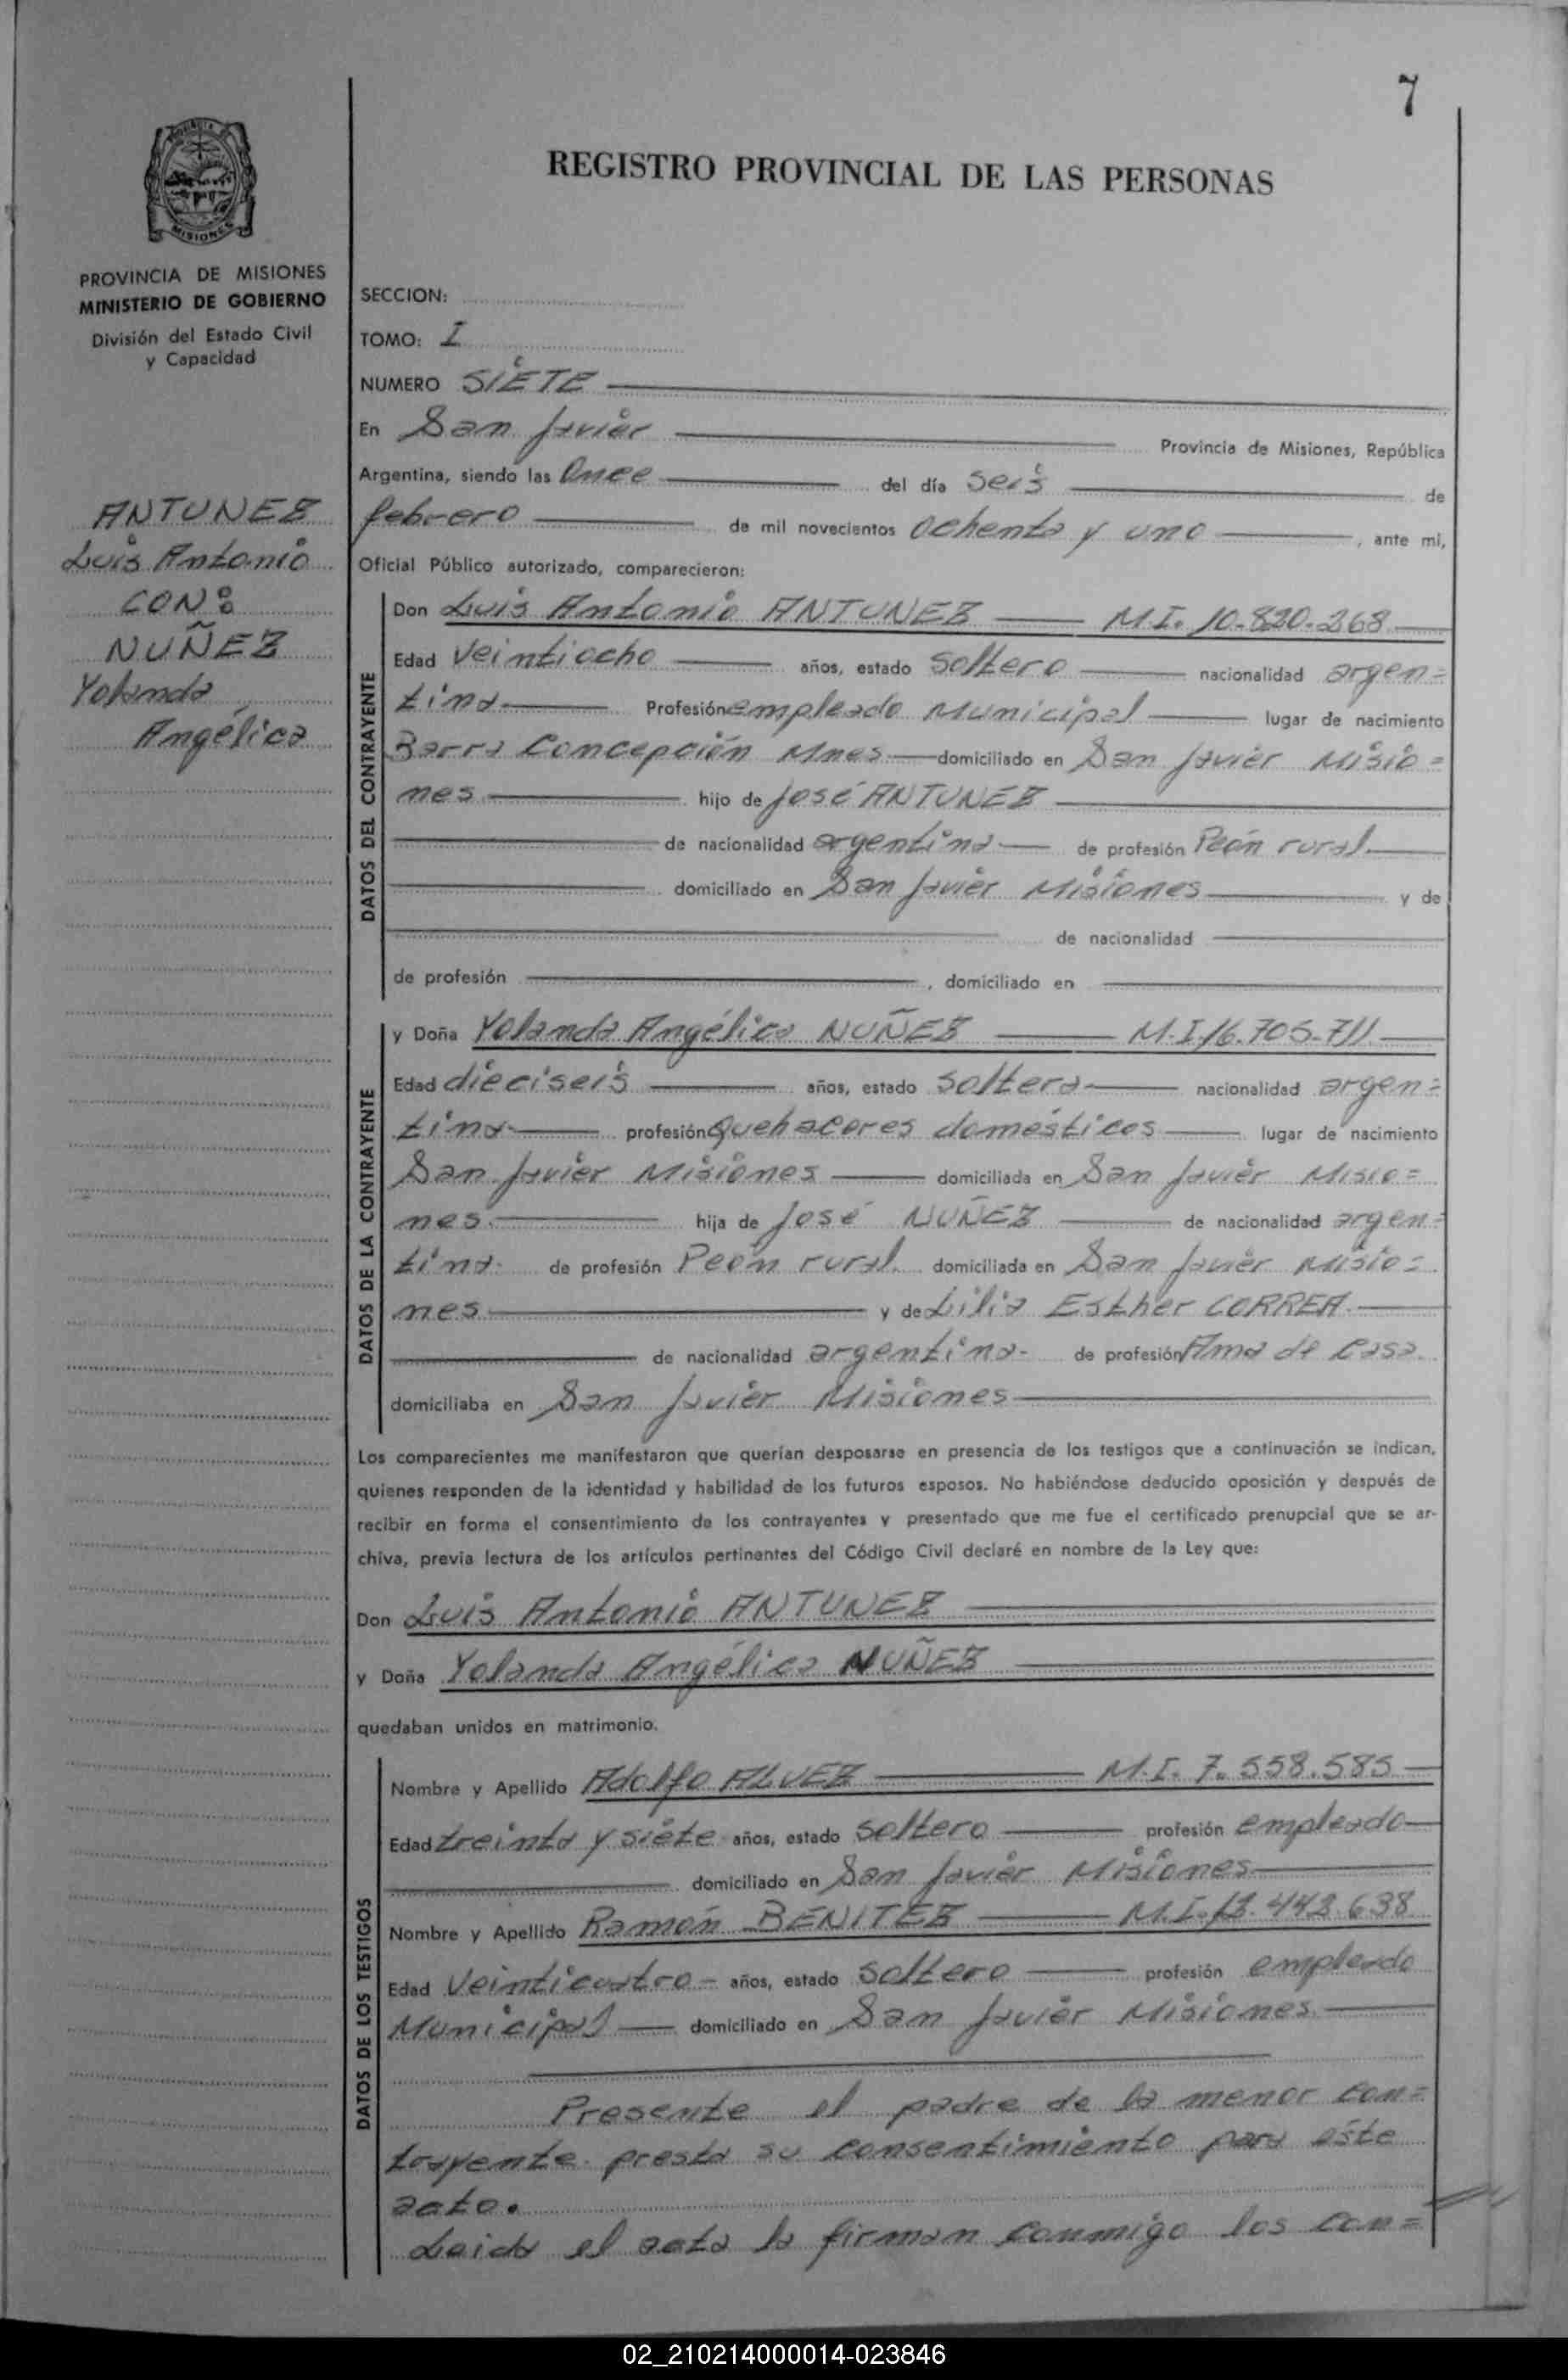 7
REGISTRO PROVINCIAL DE LAS PERSONAS
PROVINCIA DE MISIONES
MINISTERIO DE GOBIERNO
División del Estado Civil
y Capacidad
ANTUNEZ
Luis Antonio
CON:
NUÑEZ
Yolanda
Angélica
SECCION:
TOMO: I
NUMERO SIETE
En San Javier Provincia de Misiones, República
Argentina, siendo las Once del día seis de
febrero de mil novecientos ochenta y uno, ante mi,
Oficial Público autorizado, comparecieron:
DATOS DEL CONTRAYENTE
Don Luis Antonio ANTUNEZ M.I. 10.820.268
Edad Veintiocho años, estado soltero nacionalidad argen=
tina Profesión empleado Municipal lugar de nacimiento
Barra Concepción Mnes domiciliado en San Javier Misio=
nes hijo de José ANTUNEZ
de nacionalidad argentina de profesión Peón rural
domiciliado en San Javier Misiones y de
de nacionalidad
de profesión , domiciliado en
DATOS DE LA CONTRAYENTE
y Doña Yolanda Angélica NUÑEZ M.I. 16.705.711
Edad dieciseis años, estado soltera nacionalidad argen=
tina profesión quehaceres domésticos lugar de nacimiento
San Javier Misiones domiciliada en San Javier Misio=
nes. hija de José NUÑEZ de nacionalidad argen=
tina. de profesión Peón rural. domiciliada en San Javier Misio=
nes y de Lilia Esther CORREA.
de nacionalidad argentina. de profesión Ama de casa.
domiciliaba en San Javier Misiones
Los comparecientes me manifestaron que querían desposarse en presencia de los testigos que a continuación se indican,
quienes responden de la identidad y habilidad de los futuros esposos. No habiéndose deducido oposición y después de
recibir en forma el consentimiento de los contrayentes y presentado que me fue el certificado prenupcial que se ar-
chiva, previa lectura de los artículos pertinentes del Código Civil declaré en nombre de la Ley que:
Don Luis Antonio ANTUNEZ
y Doña Yolanda Angélica NUÑEZ
quedaban unidos en matrimonio.
DATOS DE LOS TESTIGOS
Nombre y Apellido Adolfo ALVEZ M.I. 7.558.585
Edad treinta y siete años, estado soltero profesión empleado
domiciliado en San Javier Misiones
Nombre y Apellido Ramón BENITEZ M.I. 12.442.638
Edad Veinticuatro años, estado soltero profesión empleado
Municipal domiciliado en San Javier Misiones.
Presente el padre de la menor con=
trayente presta su consentimiento para este
acto.
Leida el acta la firman conmigo los con=
02_210214000014-023846